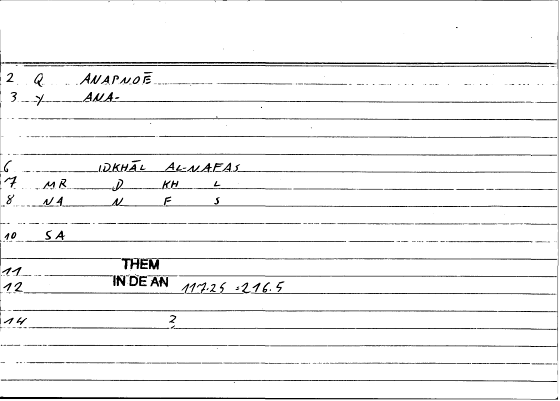 2 Q ANAPNOĒ
3 Y ANA-
6 IDKHĀL AL-NAFAS
7 MR D KH L
8 NA N F S
10 SA
11 THEM
12 IN DE AN 117.25 =216.5
14 2